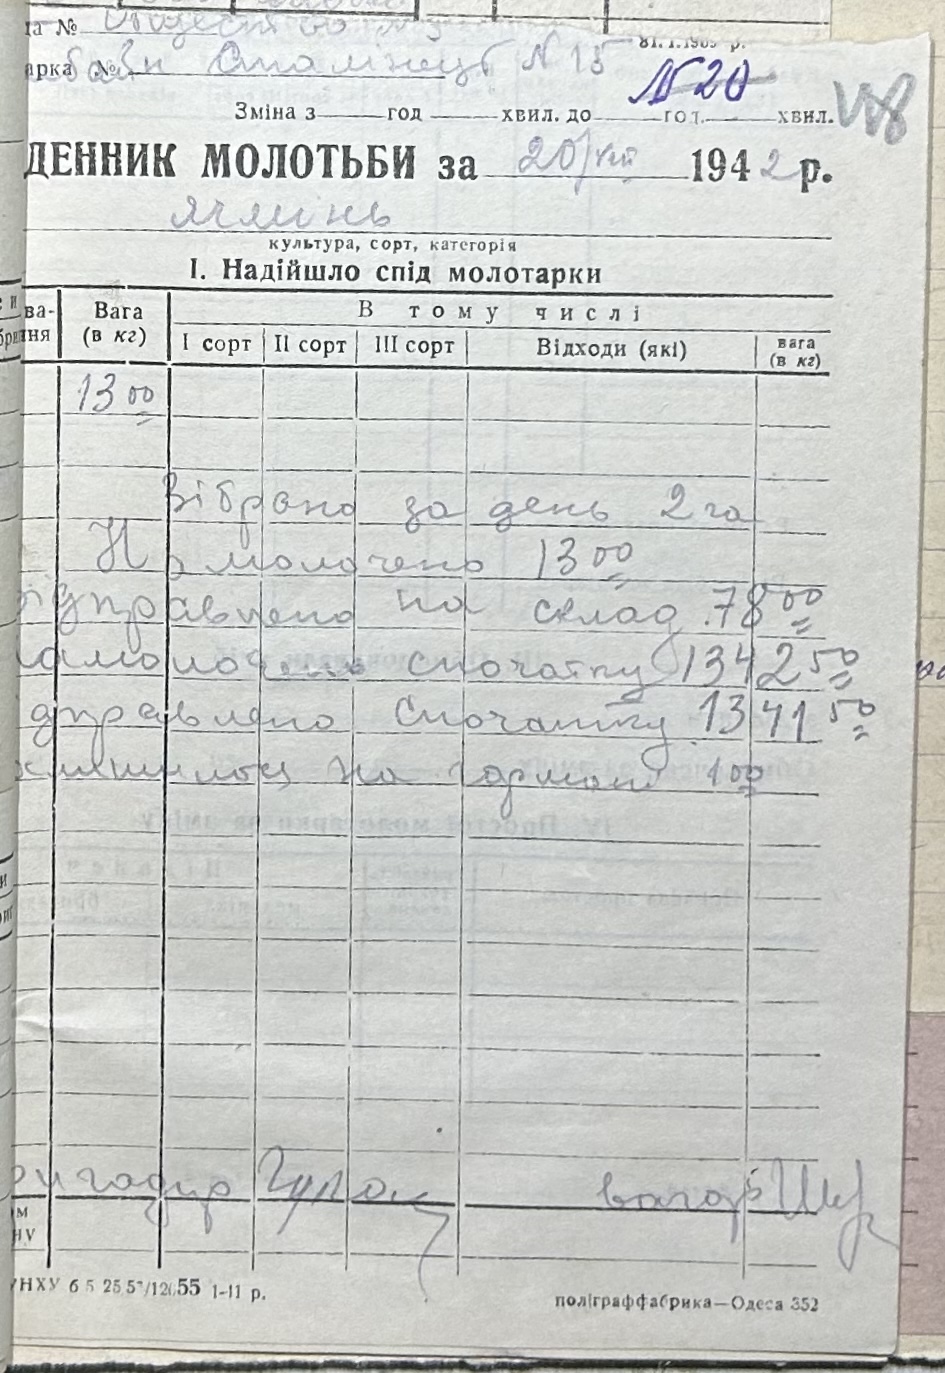 та №
81.1.1939 р.
арка № Сталінець N 15
N 20
Зміна з год хвил. до год. хвил.
ДЕННИК МОЛОТЬБИ за 20/VIII 1942 р.
ячмінь
культура, сорт, категорія
І. Надійшло спід молотарки
ва-
ння
Вага
(в кг)
В тому числі
І сорт ІІ сорт ІІІ сорт Відходи (які) вага
(в кг)
13 00
Зібрано за день 2 га
Намолочено 13 00
відправлено на склад 78 00
намолочено спочатку 1342 50
ідправлено спочатку 1341 50
залишилось на гармані 1 00
Бригадир вагарь
ом
ну
УНХУ 1-11 р.
поліграффабрика—Одеса 352